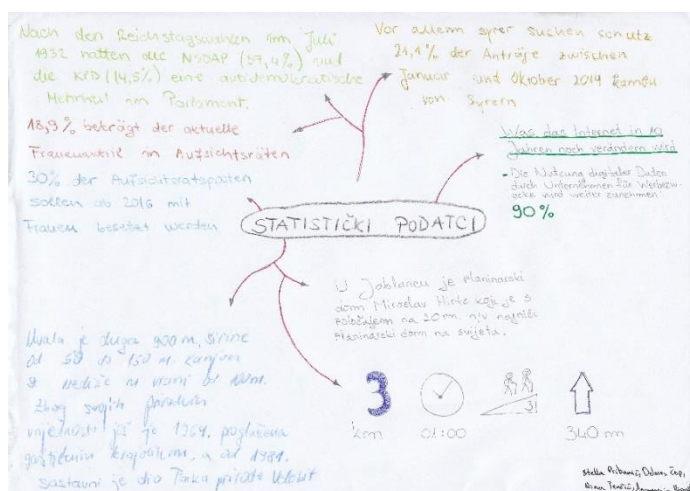 Nach den Reichstagswahlen im Juli
1932 hatten die NSDAP (37,4%) und
die KPD (14,5%) eine antidemokratische
Mehrheit im Parlament.
18,9% beträgt der aktuelle
Frauenanteil in Aufsichtsräten
30% der Aufsichtsratsposten
sollen ab 2016 mit
Frauen besetzt werden
Vor allem Syrer suchen schutz
21,1% der Anträge zwischen
Januar und Oktober 2014 kamen
von Syrern
Was das Internet in 10
Jahren noch verändern wird
- Die Nutzung digitaler Daten
durch Unternehmen für Werbezw-
ecke wird weiter zunehmen
90%
STATISTIČKI PODATCI
U Jablancu je planinarski
dom Miroslav Hirtz koji je s
položajem na 20 m. n/v najniži
planinarski dom na svijetu.
Uvala je dugga 900 m, širine
od 50 do 150 m. kanjon
se nadiže na visini od 100m.
zbog svojih
vrijednosti još je 1964. proglašena
krajolikom, a od 1981.
sastavni je dio Parka prirode Velebit
3
km
01:00
3
340 m
Stella